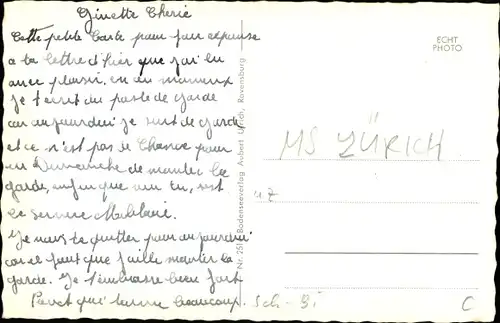 Ginette Cherie
Cette petite Carte pour fair reponse
a ta lettre d'hier que j'ai lu
avec plaisir. en du
Je t'ecrit du poste de garde
car aujourdui je suit de garde
et ce n'est pas de Chance pour
un Dimanche de monter la
garde, enfin que veu tu, s'est
le service Militaire.
Je vais te quitter pour aujourdui
car il faut que j'aille monter la
garde. Je t'embrasse bien fort
qui t'aime beaucoup.
Nr. 251 Bodenseeverlag Aubert Ulrich, Ravensburg
ECHT
PHOTO
MS ZÜRICH
Sch - Bi
C